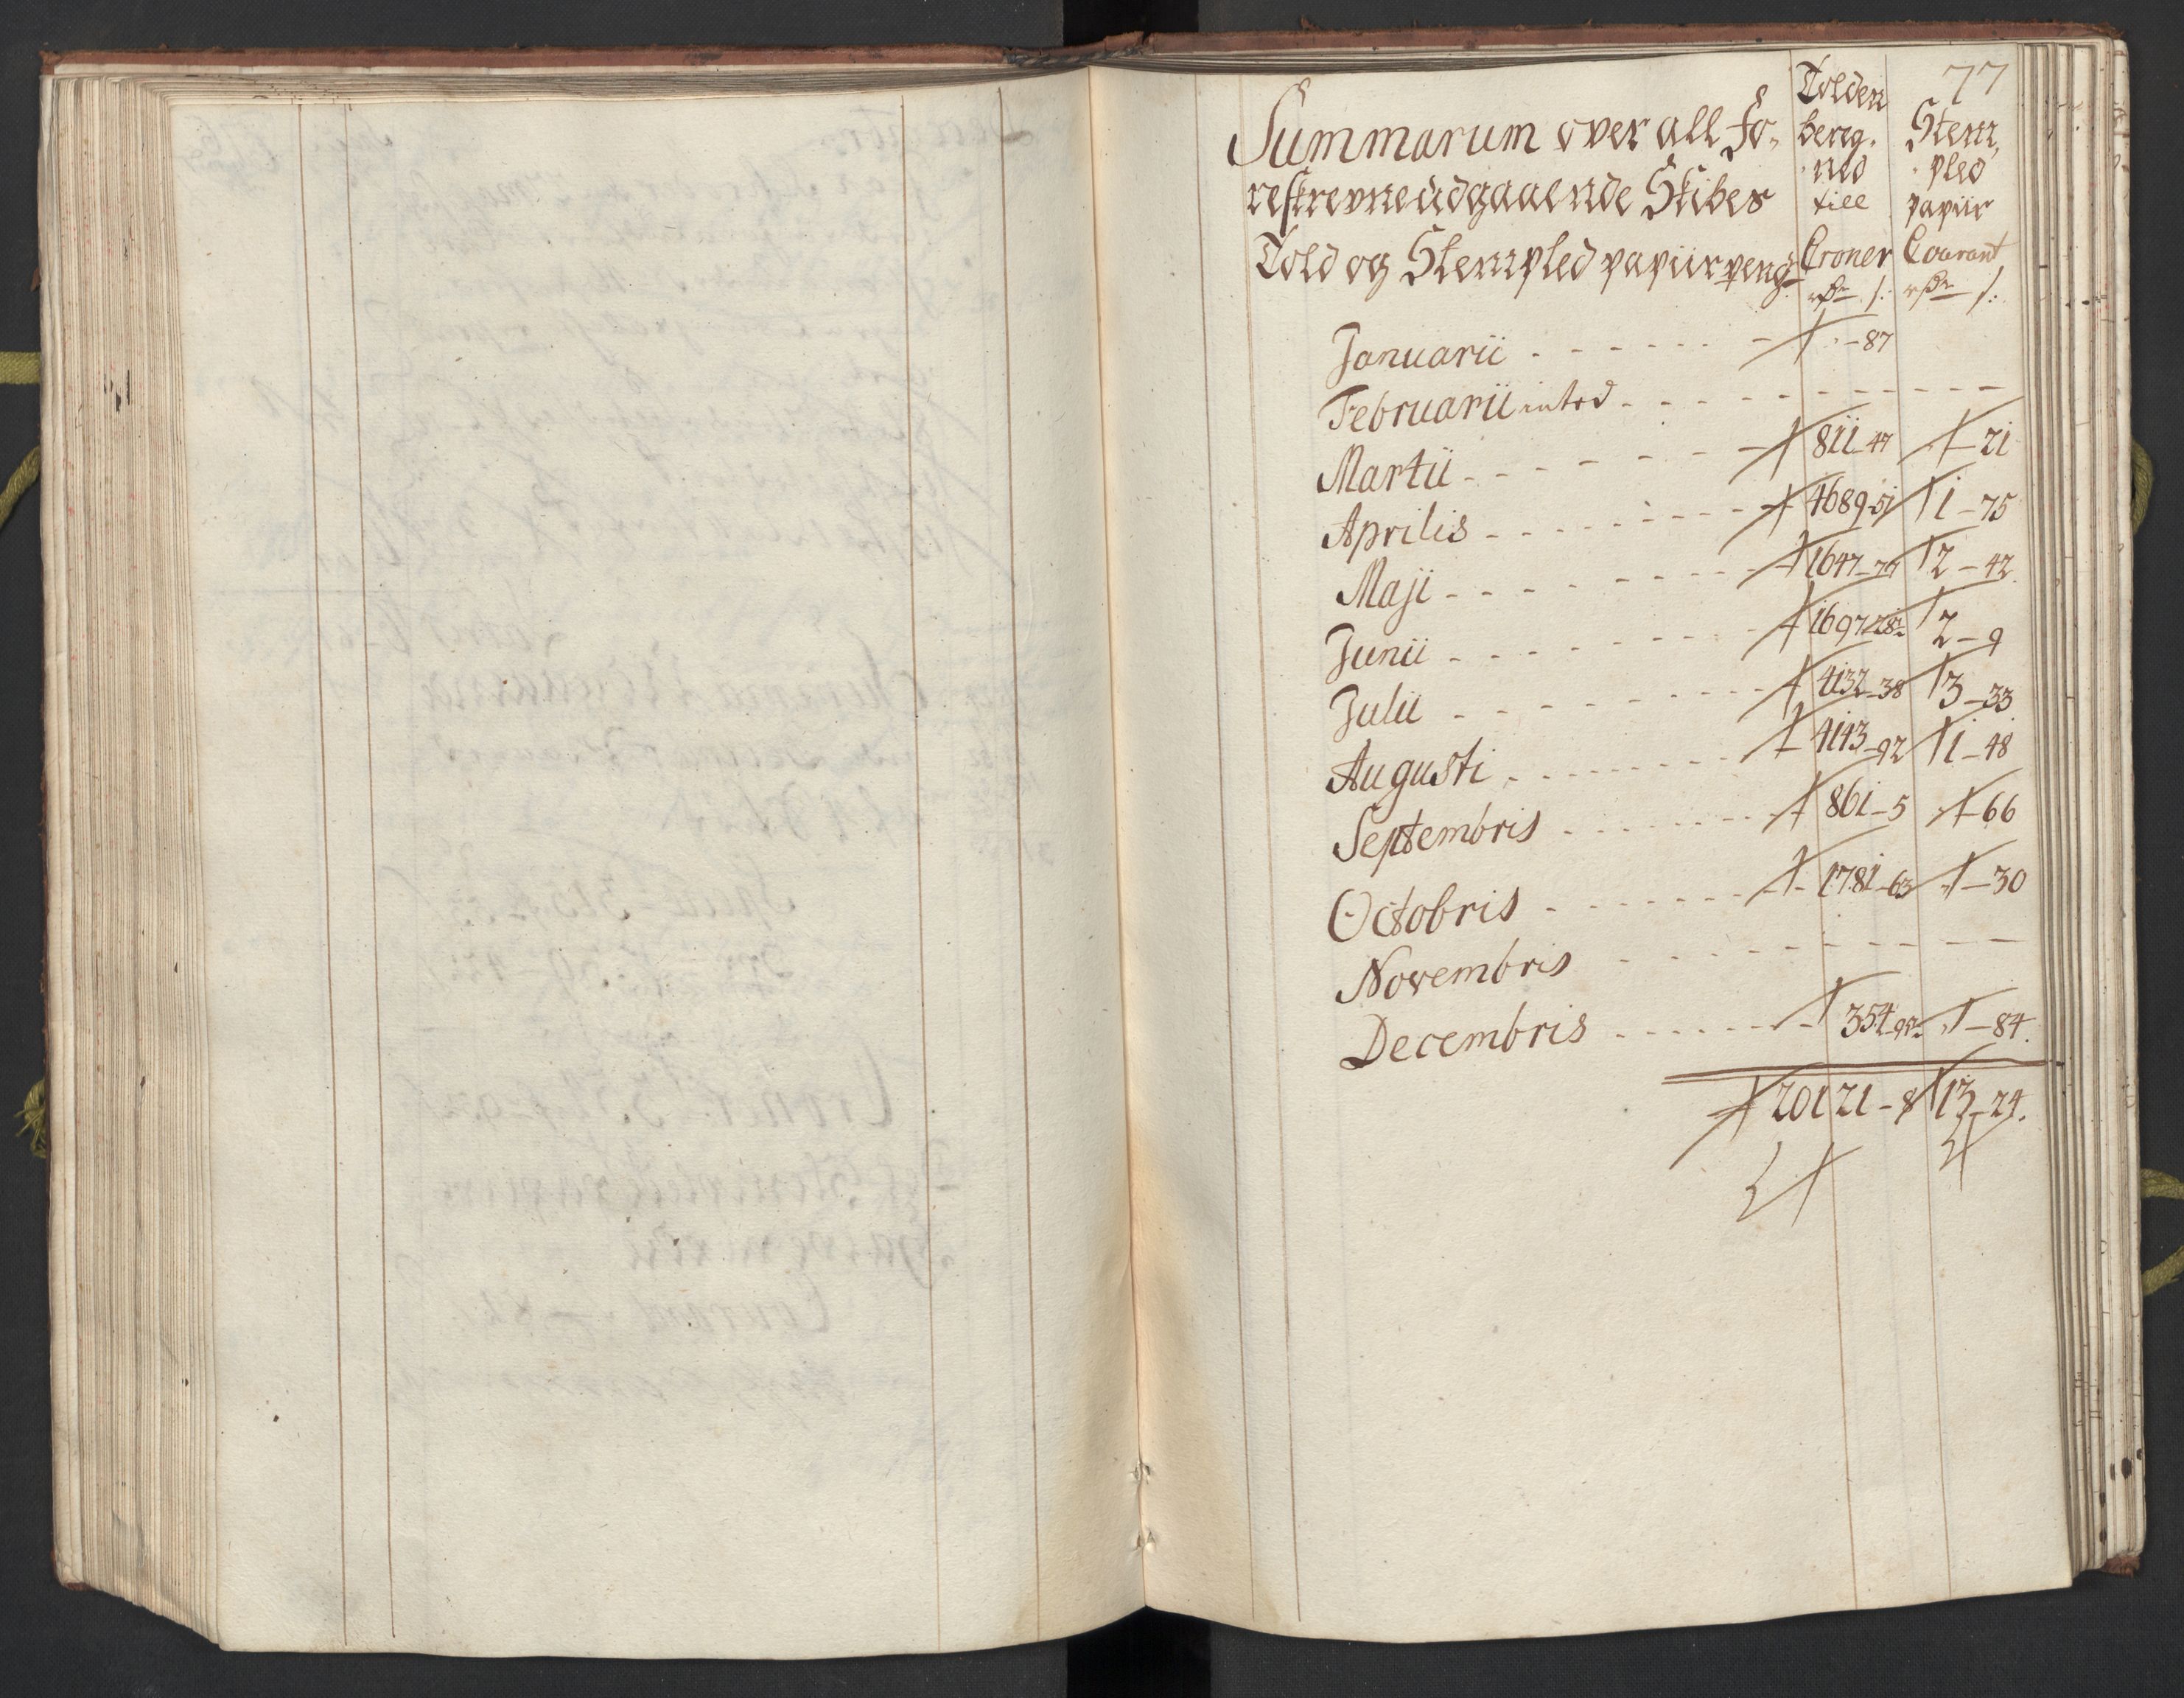 77
Summarum over all fo-
reskrevne udgaaende Skibes
Told og Stempled papiir peng:
Tolden
bereg-
ned
till
Croner
rdr s:
Stem-
pled
papiir
Courant
rdr s:
Januarii - - - - - - - 87
Februarii intet - - - - - - - - -
Martii - - - - - - 811 - 47 - 21
Aprilis - - - - - - 4689 - 51 1 - 75
Maji - - - - - - 1647 - 2 - 42
Junii - - - - - - 1697 - 2 - 9
Julii - - - - - - 4132 - 38 3 - 33
Augusti - - - - - - 4143 - 92 1 - 48
Septembris - - - - - - 861 - 5 - 66
Octobris - - - - - - 1781 - 63 - 30
Novembris - - - - - - - - -
Decembris - - - - - - 354 - - 84.
20121 - 8 13 - 24.